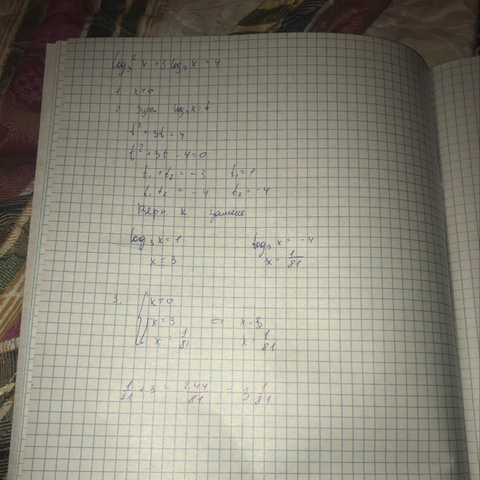 log₃² x + 3 log₃ x = 4
1. x > 0
2. Пусть log₃ x = t
t² + 3t = 4
t² + 3t - 4 = 0
t₁ + t₂ = -3 t₁ = 1
t₁ t₂ = -4 t₂ = -4
Верн к замене
log₃ x = 1 log₃ x = -4
x = 3 x = 1/81
3. { x > 0
[ x = 3 => x = 3
x = 1/81 x 1/81
1/81 + 3 = 244/81 = 3 1/81